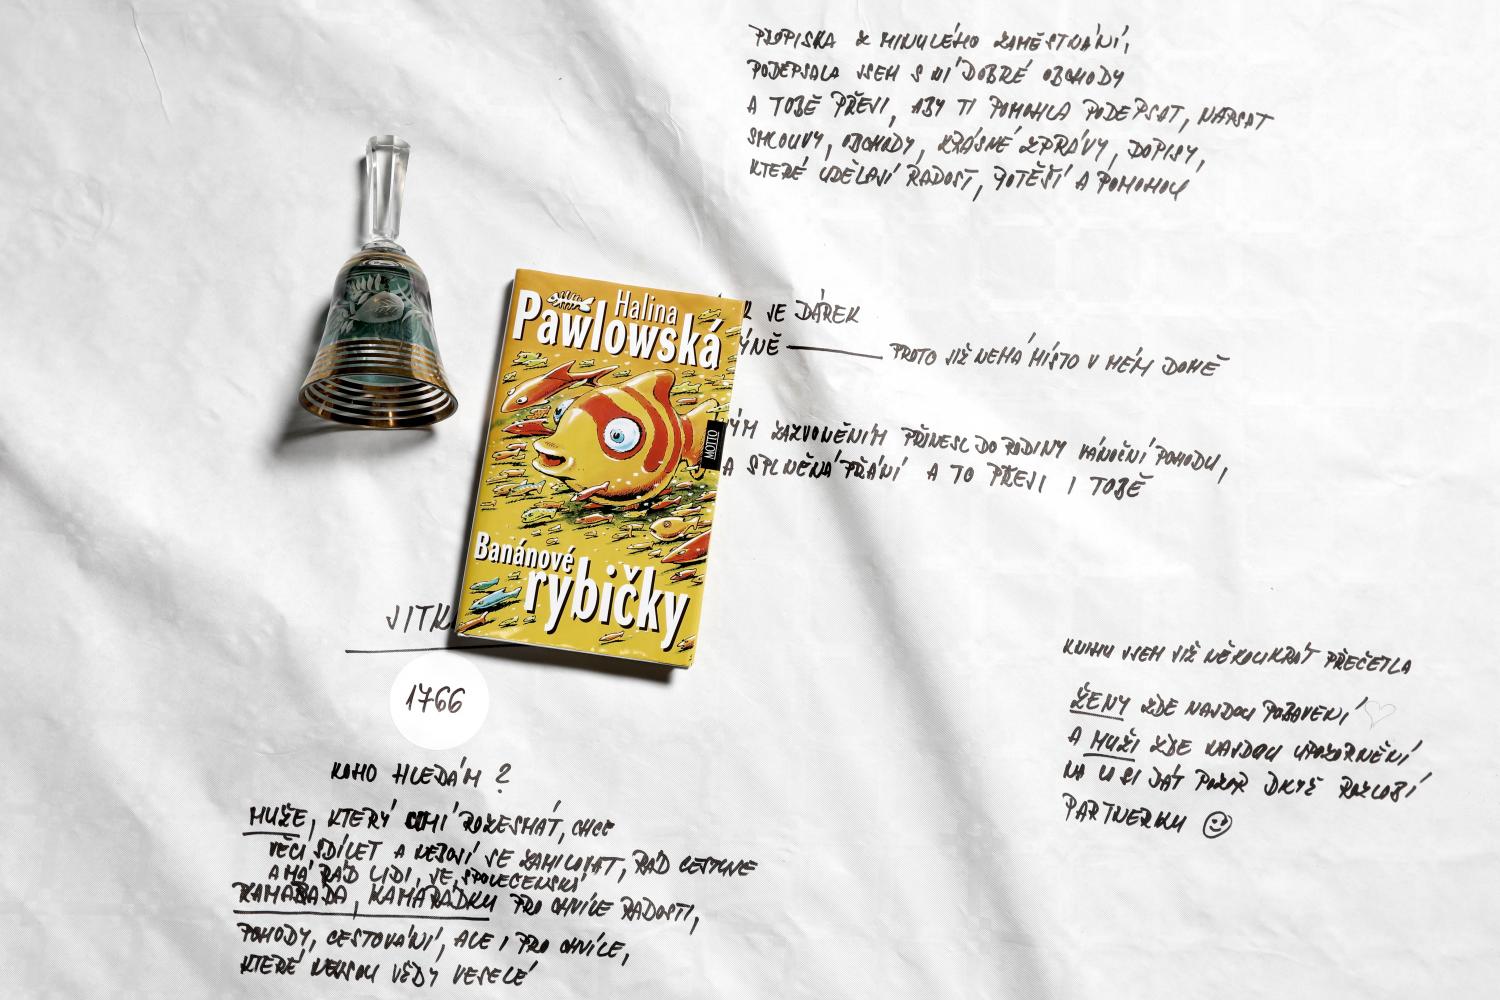 PROPISKA Z MINULÉHO ZAMĚSTNÁNÍ,
PODEPSALA JSEM S NÍ DOBRÉ OBCHODY
A TOBĚ PŘEJI, ABY TI POMOHLA PODEPSAT, NAPSAT
SMLOUVY, OBCHODY, KRÁSNÉ ZPRÁVY, DOPISY,
KTERÉ UDĚLAJÍ RADOST, POTĚŠÍ A POMOHOU
JE DÁREK
ÝNĚ — PROTO JIŽ NEMÁ MÍSTO V MÉM DOMĚ
ÝM ZAZVONĚNÍM PŘINESL DO RODINY VÁNOČNÍ POHODU,
A SPLNĚNÁ PŘÁNÍ A TO PŘEJI I TOBĚ
Halina
Pawlowská
MOTTO
Banánové
rybičky
JITK
1766
KOHO HLEDÁM ?
MUŽE, KTERÝ UMÍ ROZESMÁT, CHCE
VĚCI SDÍLET A NEBOJÍ SE ZAMILOVAT, RÁD CESTUJE
A MÁ RÁD LIDI, JE SPOLEČENSKÝ
KAMARÁDA, KAMARÁDKU PRO CHVÍLE RADOSTI,
POHODY, CESTOVÁNÍ, ALE I PRO CHVÍLE,
KTERÉ NEJSOU VŽDY VESELÉ
KNIHU JSEM JIŽ NĚKOLIKRÁT PŘEČETLA
ŽENY ZDE NAJDOU POBAVENÍ
A MUŽI ZDE NAJDOU UPOZORNĚNÍ
NA CO SI DÁT POZOR KDYŽ ROZLOBÍ
PARTNERKU